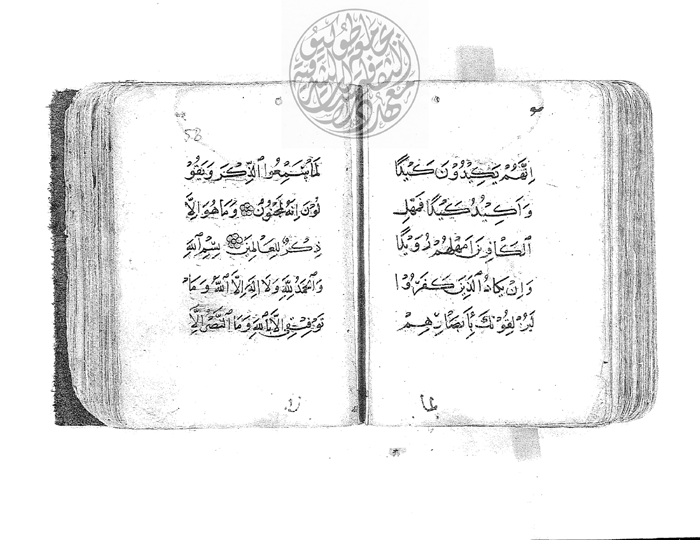 اِنَّهُمْ يَكِيْدُوْنَ كَيْدًا
وَاَكِيْدُ كَيْدًا فَمَهِّلِ
الْكَافِرِيْنَ اَمْهِلْهُمْ رُوَيْدًا
وَاِنْ يَكَادُ الَّذِيْنَ كَفَرُوْا
لَيُزْلِقُوْنَكَ بِاَبْصَارِهِمْ
58
لَمَّا سَمِعُوا الذِّكْرَ وَيَقُوْ
لُوْنَ اِنَّهُ لَمَجْنُوْنٌ وَمَا هُوَ اِلَّا
ذِكْرٌ لِلْعَالَمِيْنَ بِسْمِ اللهِ
وَالْحَمْدُ لِلّٰهِ وَلَا اِلٰهَ اِلَّا اللهُ وَمَا
تَوْفِيْقِىْ اِلَّا بِاللهِ وَمَا النَّصْرُ اِلَّا